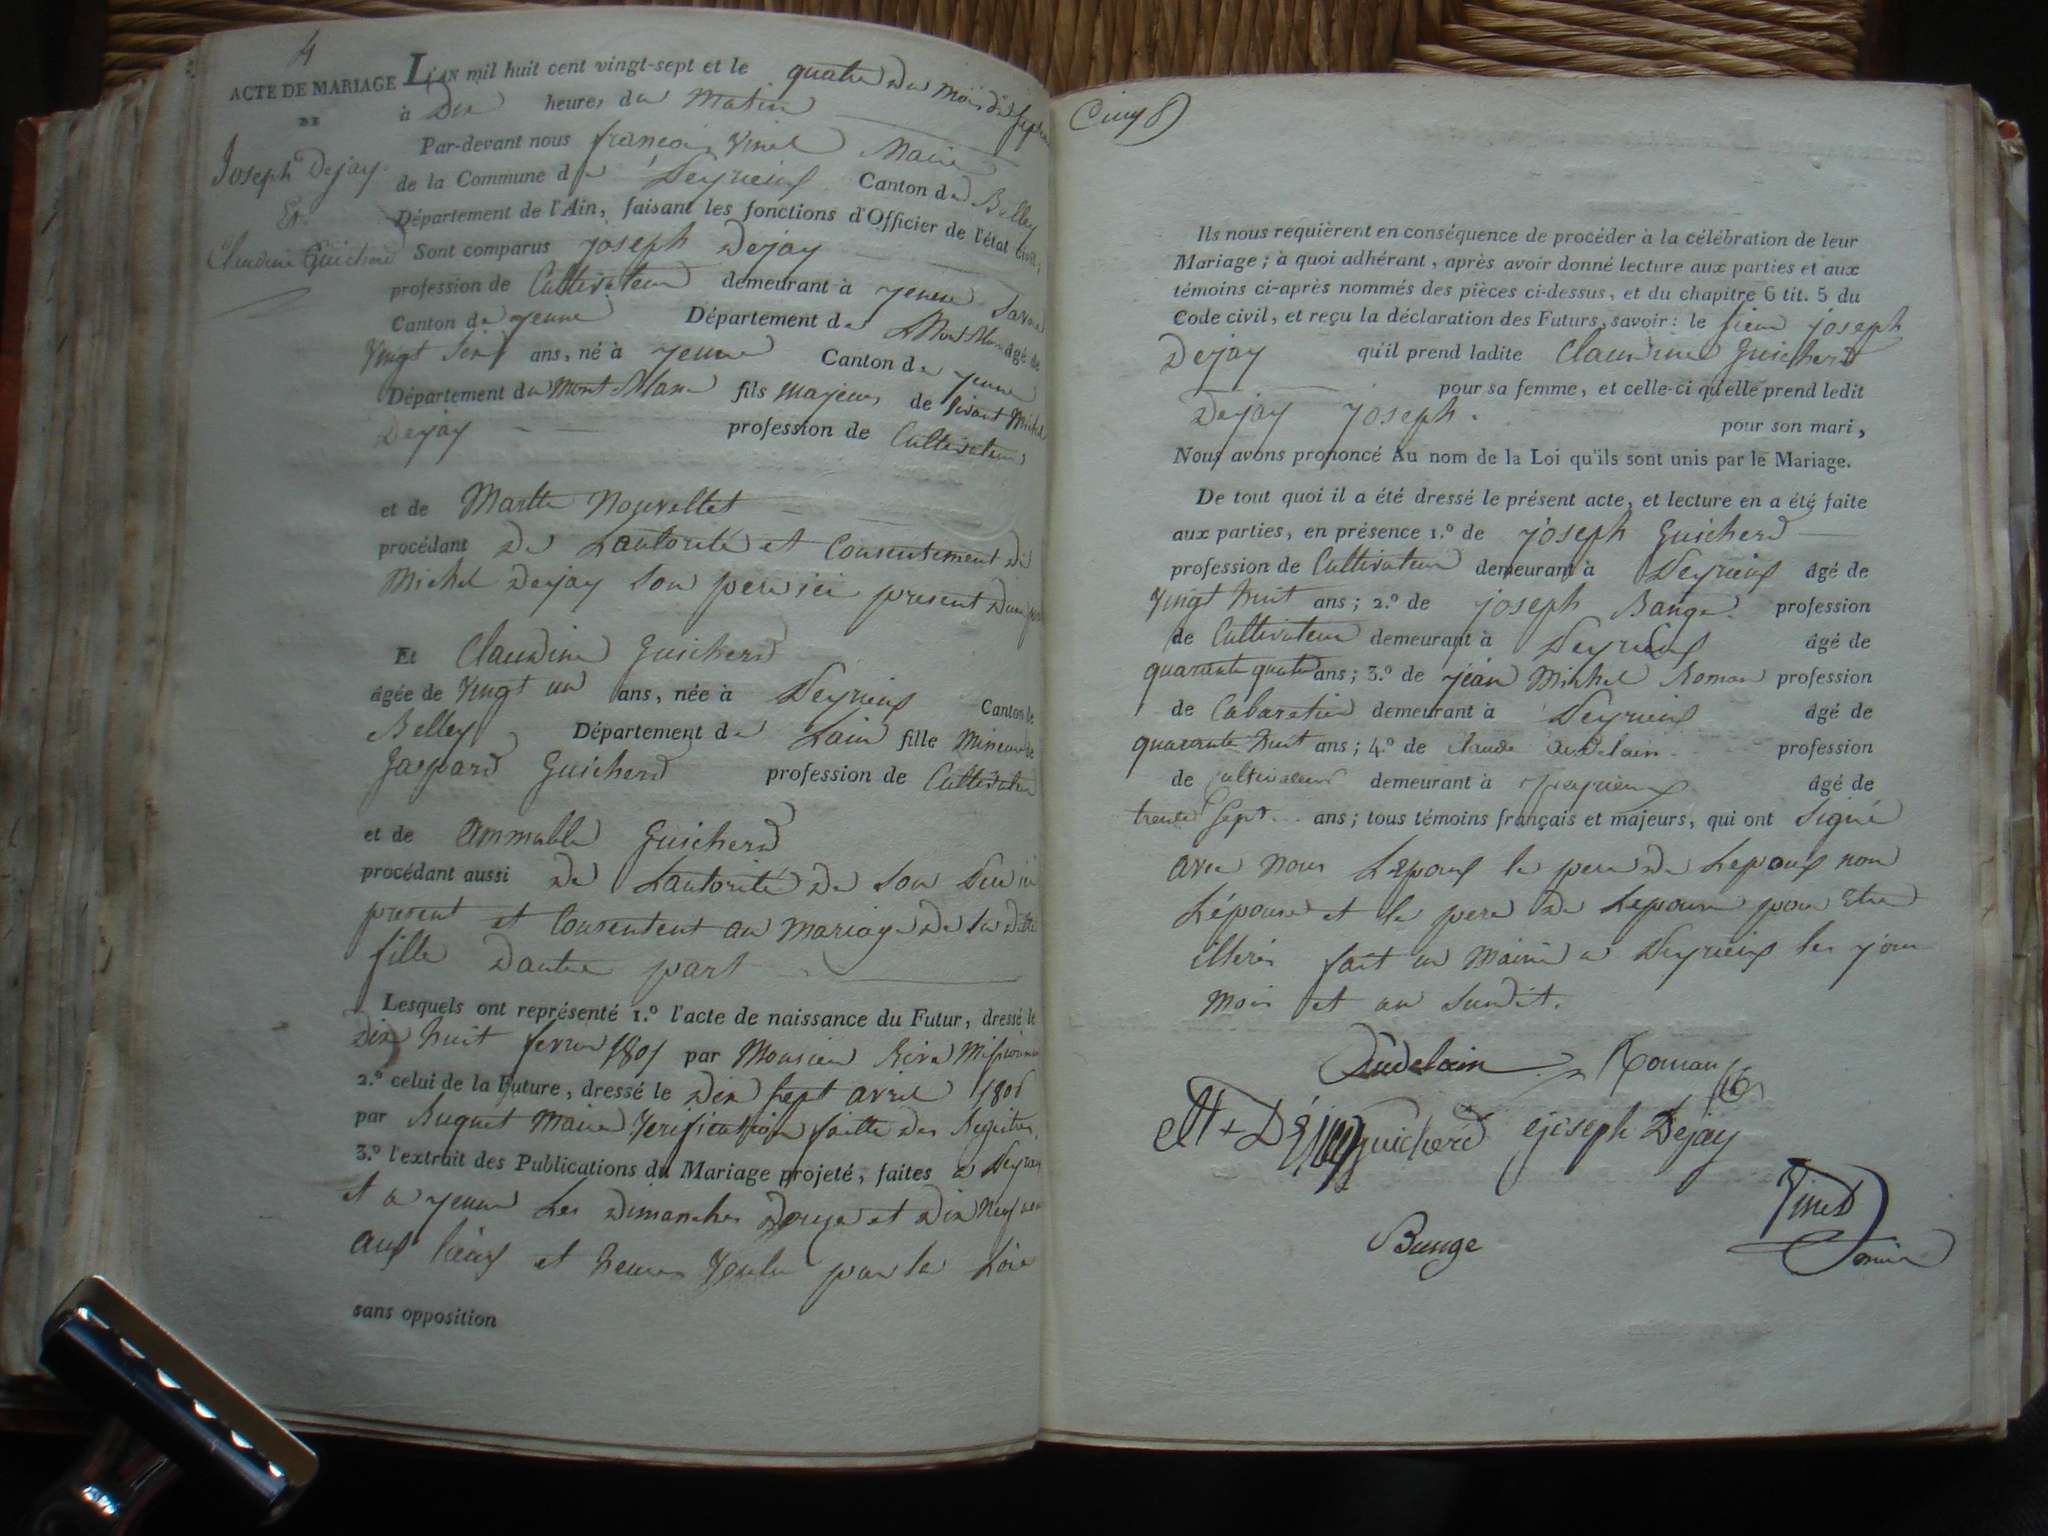 4
ACTE DE MARIAGE
DE
Joseph Dejay
Et
Claudine Guicherd
L'AN mil huit cent vingt-sept et le quatre du mois de
à Dix heures du Matin
Par-devant nous françois Vinet Maire
de la Commune de Peyrieux Canton de Belley
Département de l'Ain, faisant les fonctions d'Officier de l'état civil;
Sont comparus joseph Dejay
profession de Cultivateur demeurant à yenne Savoie
Canton de yenne Département du Mont Blanc âgé de
Vingt Sept ans, né à yenne Canton de yenne
Département du Mont Blanc fils majeur de vivant Michel
Dejay profession de Cultivateur
et de Marthe
procédant De Lautorité et Consentement de
Michel Dejay Son pere ici present Dune part
Et Claudine Guicherd
âgée de Vingt un ans, née à Peyrieux Canton de
Belley Département de Lain fille Mineure de
Gaspard Guicherd profession de Cultivateur
et de Guicherd
procédant aussi De Lautorité De Son
present et Consentent au mariage De Sa Ditte
fille Dautre part
Lesquels ont représenté 1.º l'acte de naissance du Futur, dressé le
Dix huit fevrier 1801 par Monsieur
2.º celui de la Future, dressé le Dix Sept avril 1806
par Buquet Maire Verification faitte des Registres
3.º l'extrait des Publications du Mariage projeté, faites a
et a yenne Les Dimanches Douze et Dix Neuf
aux lieux et heures Voulu par la Loi
sans opposition
Cinq
Ils nous requièrent en conséquence de procéder à la célébration de leur
Mariage; à quoi adhérant, après avoir donné lecture aux parties et aux
témoins ci-après nommés des pièces ci-dessus, et du chapitre 6 tit. 5 du
Code civil, et reçu la déclaration des Futurs, savoir: le sieur joseph
Dejay qu'il prend ladite Claudine Guicherd
pour sa femme, et celle-ci qu'elle prend ledit
Dejay joseph. pour son mari,
Nous avons prononcé Au nom de la Loi qu'ils sont unis par le Mariage.
De tout quoi il a été dressé le présent acte, et lecture en a été faite
aux parties, en présence 1.º de joseph Guicherd
profession de Cultivateur demeurant à Peyrieux âgé de
Vingt huit ans; 2.º de joseph Bange profession
de Cultivateur demeurant à Peyrieux âgé de
quarante quatre ans; 3.º de jean Michel Roman profession
de Cabaretier demeurant à Peyrieux âgé de
quarante huit ans; 4.º de claude Audelain profession
de Cultivateur demeurant à Peyrieux âgé de
trente Sept ans; tous témoins français et majeurs, qui ont Signé
avec nous Lepoux le pere De Lepoux non
Lépouse et le pere De Lepouse pour Etre
illeré fait en Mairie a Peyrieux les jour
Mois et an Susdit.
Audelain Roman
M Dejay guicherd joseph Dejay
Bange
Vinet
maire